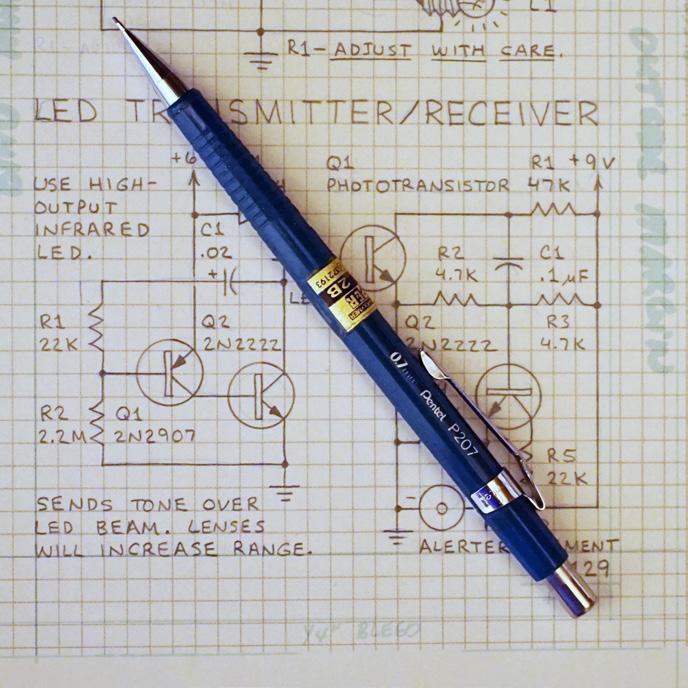 L1
R1-ADJUST WITH CARE.
LED TRANSMITTER/RECEIVER
USE HIGH-
OUTPUT
INFRARED
LED.
C1
.02
+
R1
22K
Q2
2N2222
R2
2.2M
Q1
2N2907
SENDS TONE OVER
LED BEAM. LENSES
WILL INCREASE RANGE.
Q1
PHOTOTRANSISTOR
R1 +9V
47K
R2
4.7K
C1
.1µF
R3
4.7K
Q2
2N2222
R5
22K
-
ALERTER
129
2B
0.7mm Pentel P207
1/4" BLEED